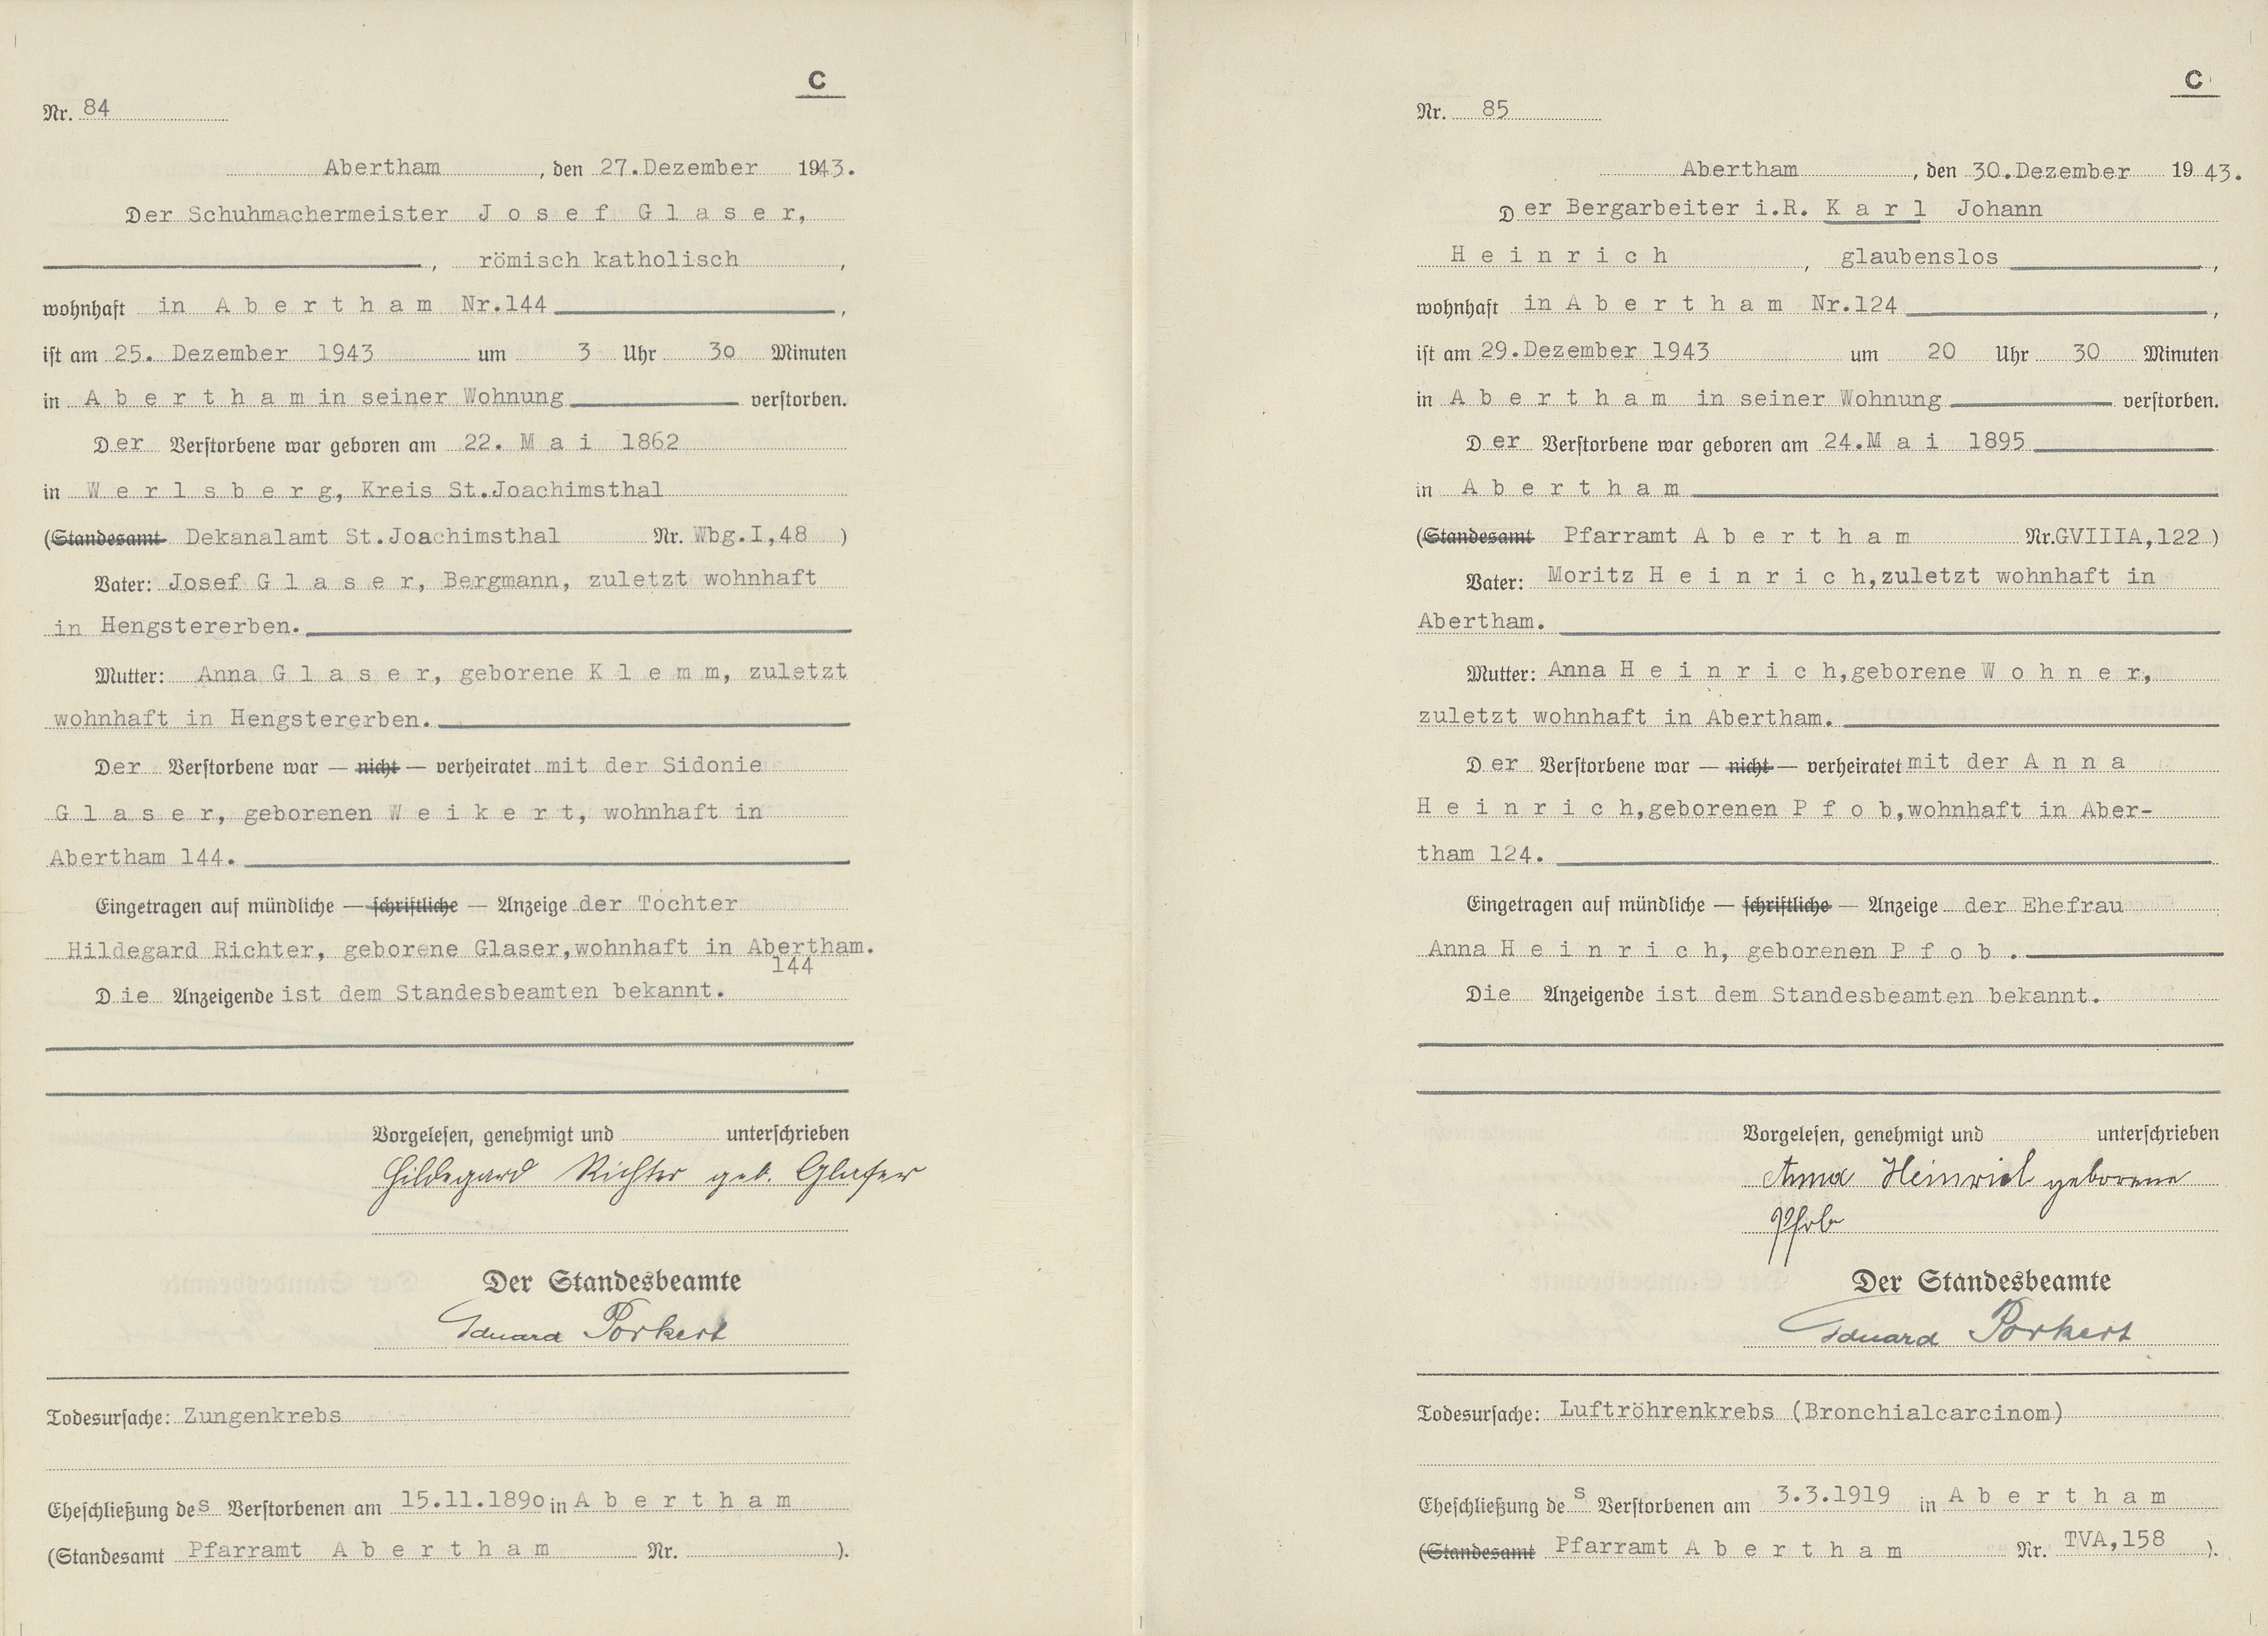 C
Nr. 84
Abertham, den 27.Dezember 1943.
Der Schuhmachermeister J o s e f G l a s e r,
, römisch katholisch,
wohnhaft in A b e r t h a m Nr.144,
ist am 25. Dezember 1943 um 3 Uhr 3o Minuten
in A b e r t h a m in seiner Wohnung verstorben.
Der Verstorbene war geboren am 22. M a i 1862
in W e r l s b e r g, Kreis St.Joachimsthal
(Standesamt Dekanalamt St.Joachimsthal Nr. Wbg.I,48 )
Vater: Josef G l a s e r, Bergmann, zuletzt wohnhaft
in Hengstererben.
Mutter: Anna G l a s e r, geborene K l e m m, zuletzt
wohnhaft in Hengstererben.
Der Verstorbene war — nicht — verheiratet mit der Sidonie
G l a s e r, geborenen W e i k e r t, wohnhaft in
Abertham 144.
Eingetragen auf mündliche — schriftliche — Anzeige der Tochter
Hildegard Richter, geborene Glaser,wohnhaft in Abertham.
144
Die Anzeigende ist dem Standesbeamten bekannt.
Vorgelesen, genehmigt und unterschrieben
Hildegard Richter geb. Glaser
Der Standesbeamte
Eduard Porkert
Todesursache: Zungenkrebs
Eheschließung des Verstorbenen am 15.11.189o in A b e r t h a m
(Standesamt Pfarramt A b e r t h a m Nr. ).
C
Nr. 85
Abertham, den 30.Dezember 1943.
Der Bergarbeiter i.R. K a r l Johann
H e i n r i c h, glaubenslos,
wohnhaft in A b e r t h a m Nr.124,
ist am 29.Dezember 1943 um 20 Uhr 30 Minuten
in A b e r t h a m in seiner Wohnung verstorben.
Der Verstorbene war geboren am 24.M a i 1895
in A b e r t h a m
(Standesamt Pfarramt A b e r t h a m Nr.GVIIIA,122 )
Vater: Moritz H e i n r i c h,zuletzt wohnhaft in
Abertham.
Mutter: Anna H e i n r i c h,geborene W o h n e r,
zuletzt wohnhaft in Abertham.
Der Verstorbene war — nicht — verheiratet mit der A n n a
H e i n r i c h,geborenen P f o b,wohnhaft in Aber-
tham 124.
Eingetragen auf mündliche — schriftliche — Anzeige der Ehefrau
Anna H e i n r i c h, geborenen P f o b .
Die Anzeigende ist dem Standesbeamten bekannt.
Vorgelesen, genehmigt und unterschrieben
Anna Heinrich geborene
Pfob
Der Standesbeamte
Eduard Porkert
Todesursache: Luftröhrenkrebs (Bronchialcarcinom)
Eheschließung des Verstorbenen am 3.3.1919 in A b e r t h a m
(Standesamt Pfarramt A b e r t h a m Nr. TVA,158 ).